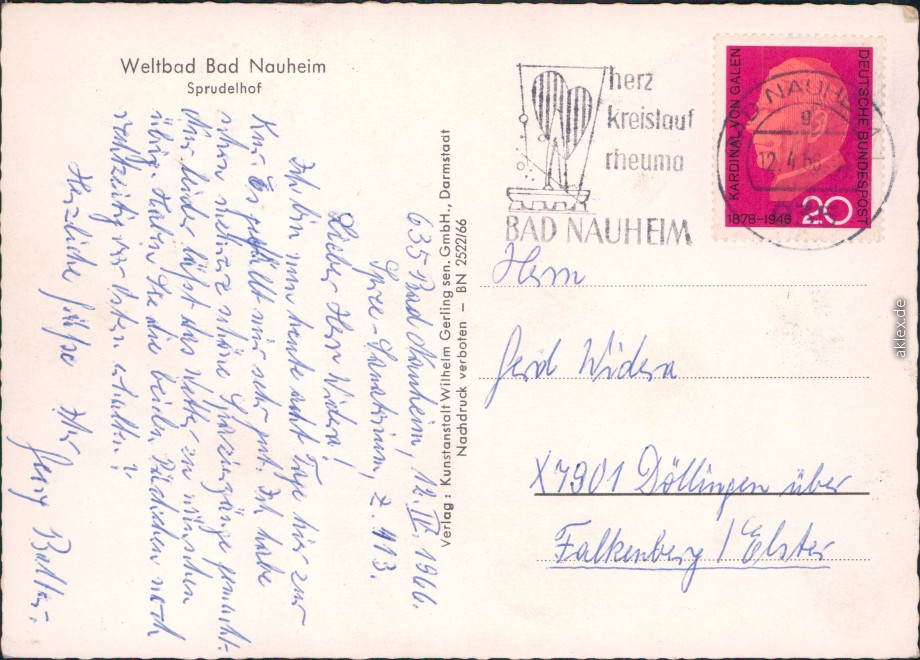 Weltbad Bad Nauheim
Sprudelhof
635 Bad Nauheim, 12. IV. 1966.
Spree-Sanatorium, Z. 413.
Lieber Herr Widera!
Ich bin nun heute acht Tage hier zur
Kur. Es gefällt mir sehr gut. Ich habe
schon mehrere schöne Spaziergänge gemacht.
Nur leider läßt das Wetter zu wünschen
übrig. Haben Sie die beiden Päckchen noch
rechtzeitig vor Ostern erhalten?
Herzliche Grüße Ihr
Verlag: Kunstanstalt Wilhelm Gerling sen. GmbH., Darmstadt
Nachdruck verboten — BN 2522/66
herz
kreislauf
rheuma
BAD NAUHEIM
KARDINAL VON GALEN
DEUTSCHE BUNDESPOST
1878-1946
20
BAD NAUHEIM 1
g
12.4.66
Herrn
Gerd Widera
X7901 Döllingen über
Falkenberg / Elster
aklex.de